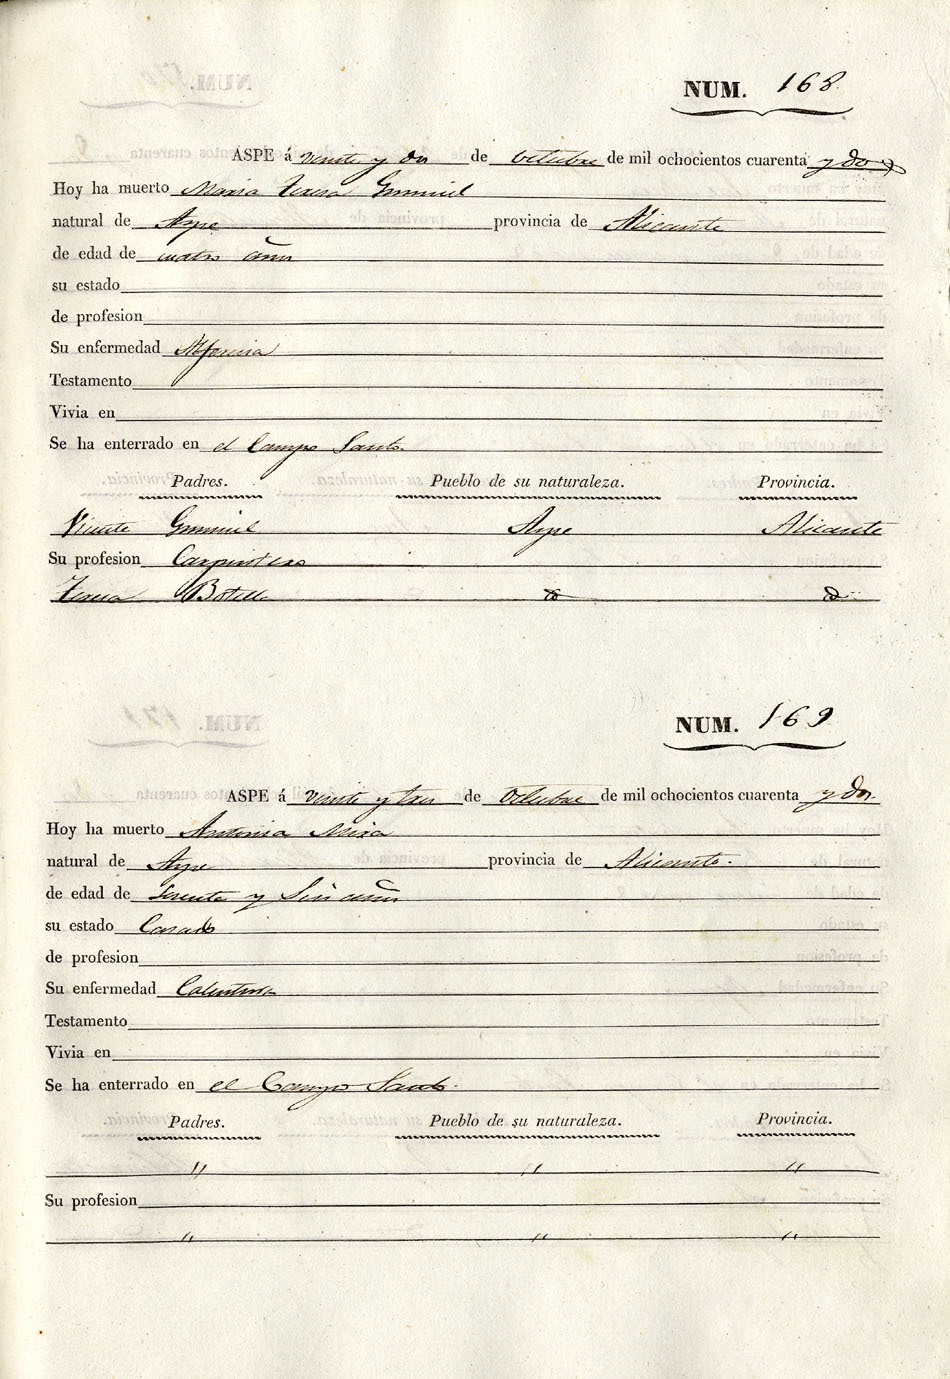 NUM. 168
ASPE á veinte y dos de Octubre de mil ochocientos cuarenta y dos
Hoy ha muerto Maria Teresa
natural de Aspe provincia de Alicante
de edad de cuatro años
su estado
de profesion
Su enfermedad Alferecia
Testamento
Vivia en
Se ha enterrado en el Campo Santo
Padres. Pueblo de su naturaleza. Provincia.
Vicente Aspe Alicante
Su profesion Carpintero
Teresa Botella
NUM. 169
ASPE á veinte y tres de Octubre de mil ochocientos cuarenta y dos
Hoy ha muerto Antonia Mira
natural de Aspe provincia de Alicante.
de edad de y Seis años
su estado Casado
de profesion
Su enfermedad Calentura
Testamento
Vivia en
Se ha enterrado en el Campo Santo.
Padres. Pueblo de su naturaleza. Provincia.
" " "
Su profesion
" " "